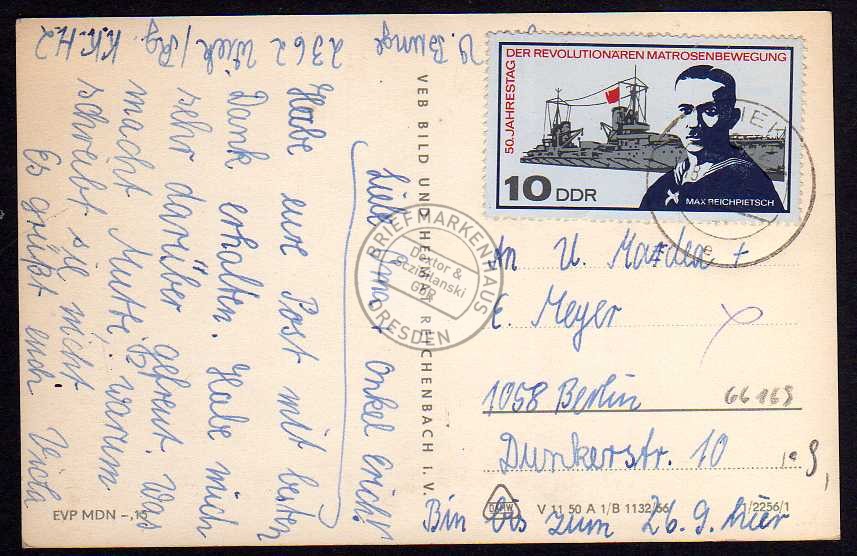 V. Bunge
2362 Wiek/Rg. K.K.H.2
Liebe Oma + Onkel Erich!
Habe eure Post mit besten
Dank erhalten. Habe mich
sehr darüber gefreut. Was
macht Mutti, warum
schreibt sie nicht
Es grüßt euch Viola
EVP MDN –,15
VEB BILD UND HEIMAT REICHENBACH I. V.
50. JAHRESTAG DER REVOLUTIONÄREN MATROSENBEWEGUNG
10 DDR
MAX REICHPIETSCH
e
BRIEFMARKENHAUS
Dextor &
GbR
DRESDEN
An U. +
E. Meyer
1058 Berlin
66169
Dunkerstr. 10
Bin bis zum 26.9. hier
V 11 50 A 1/B 1132/66
1/2256/1